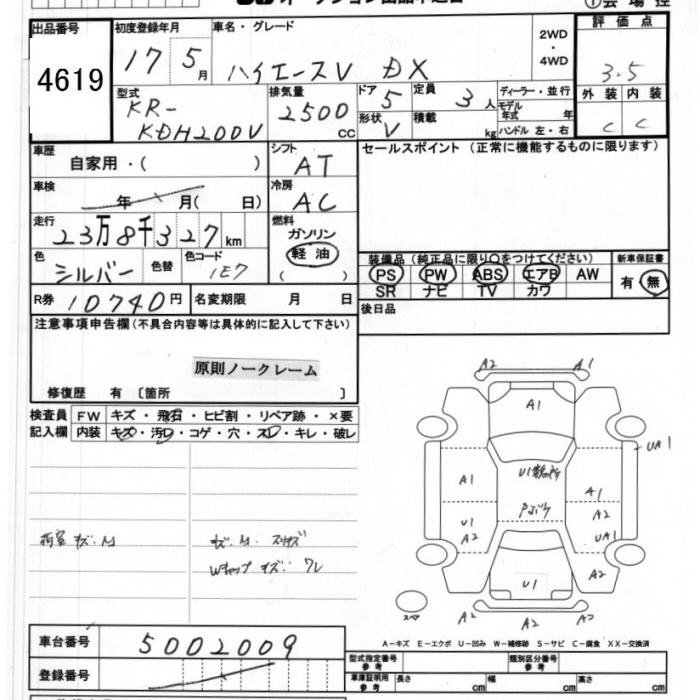 出品番号 初度登録年月 車名・グレード 2WD・4WD 評価点
4619 17 5月 ハイエースV DX 3.5
型式 排気量 ドア 定員 ディーラー・並行 外装 内装
KR-KDH200V 2500cc 5 3人 モデル年式 年 C C
形状 V 積載 kg ハンドル 左・右
車歴 自家用・( ) シフト AT セールスポイント(正常に機能するものに限ります)
車検 年 月( 日) 冷房 AC
走行 23万8千327km 燃料 ガソリン 軽油 ( )
色 シルバー 色替 色コード 1E7
装備品(純正品に限り○をつけてください) 新車保証書
PS PW ABS エアB AW 有・無
SR ナビ TV カワ
R券 10740円 名変期限 月 日 後日品
注意事項申告欄(不具合内容等は具体的に記入して下さい)
原則ノークレーム
修復歴 有〔箇所 〕
検査員記入欄 FW キズ・飛石・ヒビ割・リペア跡・×要
内装 キズ・汚レ・コゲ・穴・スレ・キレ・破レ
荷室 キズ.M
キズ.M. スリキズ
Wキャップ キズ: ワレ
A2 A1
A1
UA1
A1 U1 A1
U1 A2
A2 UA1
U1 A2
スペア A2 A2 A2
A-キズ E-エクボ U-凹み W-補修跡 S-サビ C-腐食 XX-交換済
車台番号 5002009
登録番号
型式指定番号 参考 類別区分番号 参考
車庫証明用 参考 長さ cm 幅 cm 高さ cm